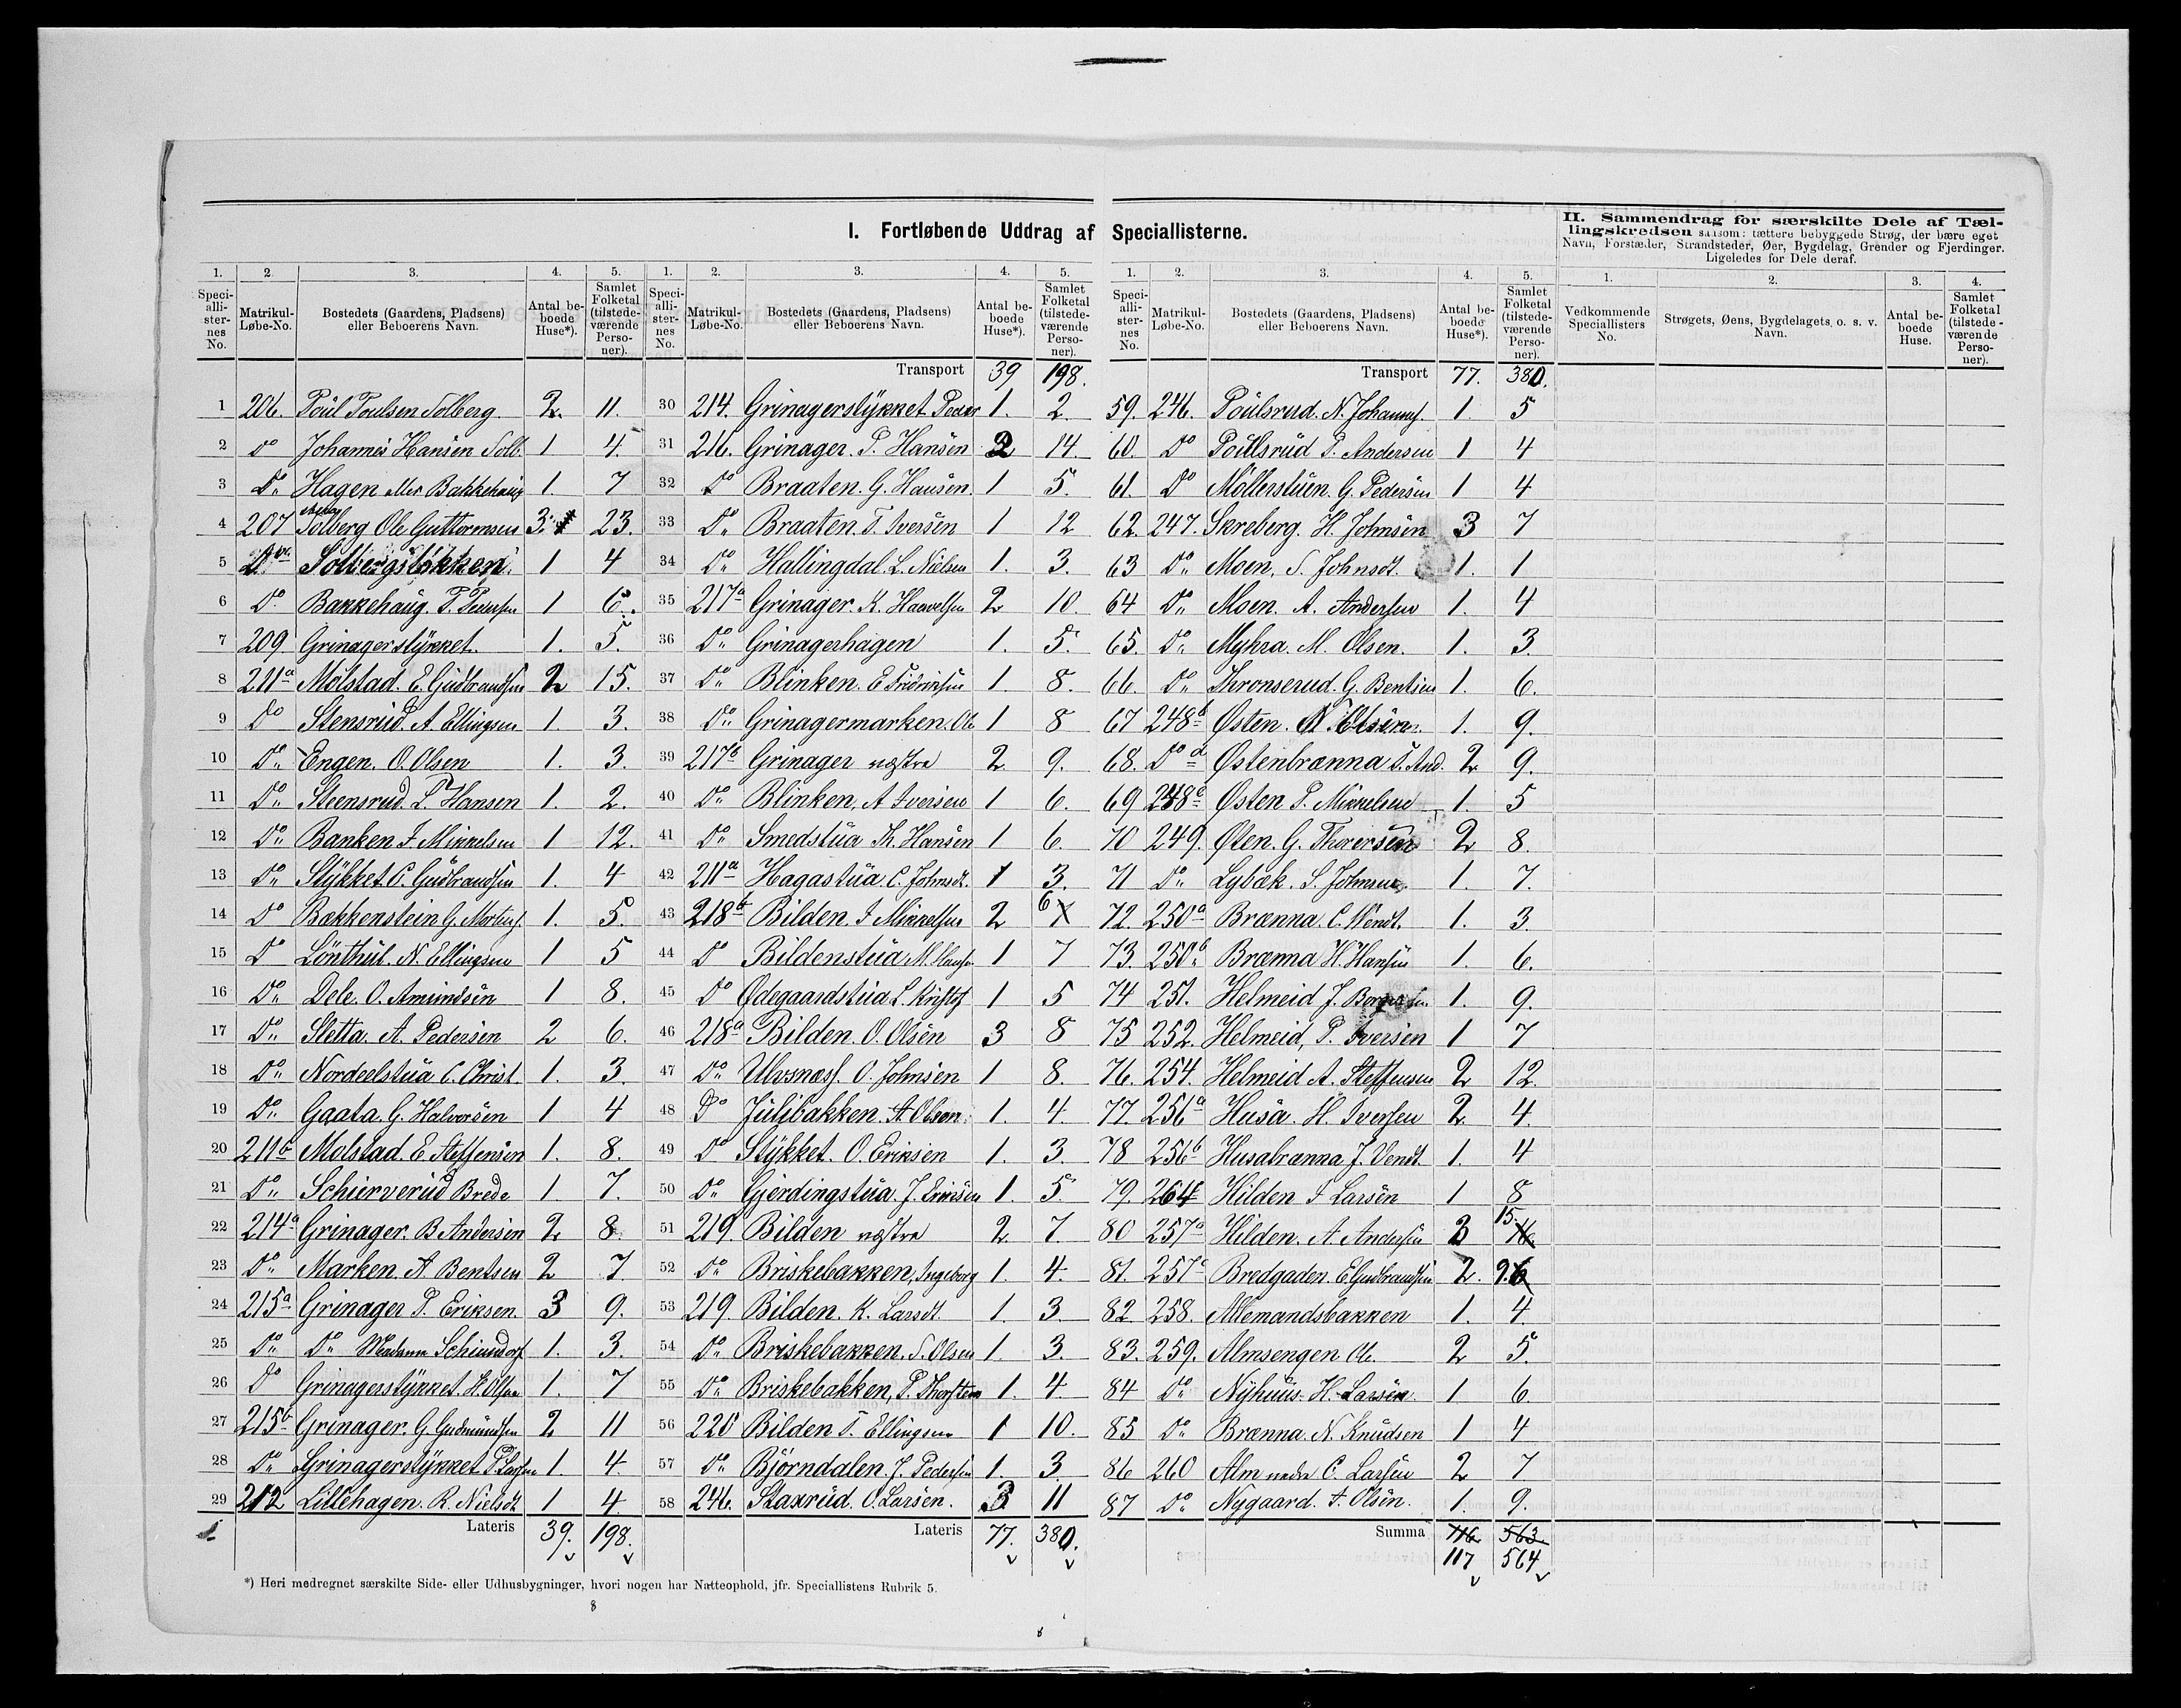 I. Fortløbende Uddrag af Speciallisterne.
II. Sammendrag for særskilte Dele af Tæl-
lingskredsen saasom: tættere bebyggede Strøg, der bære eget
Navn, Forstæder, Strandsteder, Øer, Bygdelag, Grender og Fjerdinger.
Ligeledes for Dele deraf.
1. 2. 3. 4. 5.
Speci-alli-ster-nes No. Matrikul-Løbe-No. Bostedets (Gaardens, Pladsens) eller Beboerens Navn. Antal be-boede Huse*). Samlet Folketal (tilstede-værende Perso-ner).
1 206. Poul Poulsen Solberg 2. 11.
2 do Johannes Hansen Solb. 1 4.
3 Do Hagen eller Bakkehaug 1. 7
4 207 Solberg Ole Guttormsen 3. 23.
5 Do Solbergsløkken 1 4
6 Do Bakkehaug. P. Pedersen 1 6.
7 209. Grinagerstykket 1. 5.
8 211a Molstad. E. Gudbrandsen 2 15.
9 Do Stensrud. A. Ellingsen 1. 3.
10 Do Engen. O. Olsen 1. 3.
11 Do Steensrud. L. Hansen 1. 2.
12 Do Banken I Mikkelsen 1 12.
13 Do Stykket. P. Gudbrandsen 1. 4
14 Do Bækkenstein G. Mortens. 1. 5.
15 Do Lönthul. N. Ellingsen 1 5
16 Do Dele. O. Amundsen 1 8.
17 Do Sletta. A. Pedersen 2 6.
18 Do Nordeelstua C. Christ. 1. 3.
19 Do Gaata. G. Halvorsen 1 4
20 211b Molstad. E Steffensen 1. 8.
21 Do Schierverud Brede 1 7.
22 214a Grinager. B Andersen 2 8.
23 Do Marken. A. Bentsen 2 7.
24 215a Grinager P. Eriksen. 3 9.
25 Do Do Madame 1. 3.
26 Do Grinagerstykket. H. Olsen 1. 7
27 215b Grinager. G. Gudmundsen 2 11
28 Do Grinagerstykket P. Larsen 1. 4.
29 212 Lillehagen. R. Nielsdt. 1 4.
Lateris 39. 198.
1. 2. 3. 4. 5.
Speci-alli-ster-nes No. Matrikul-Løbe-No. Bostedets (Gaardens, Pladsens) eller Beboerens Navn. Antal be-boede Huse*). Samlet Folketal (tilstede-værende Perso-ner).
Transport 39 198.
30 214. Grinagerstykket Peder 1. 2.
31 216. Grinager. P. Hansen 2 14.
32 Do Braaten. G. Hansen. 1 5.
33 Do Braaten. T. Iversen 1 12
34 Do Hallingdal. L. Nielsen 1. 3.
35 217a Grinager. K. Haavelsen 2 10.
36 Do Grinagerhagen 1. 5.
37 Do Blinken. E Fridriksen 1. 8.
38 Do Grinagermarken. Ole 1 8
39 217b Grinager vestre 2. 9.
40 Do Blinken, A Iversen 1 6.
41 Do Smedstua Th. Hansen 1 6.
42 211a Hagastua. C. Johnsdt. 1 3.
43 218b Bilden. I Mikkelsen 2 6
44 Do Bildenstua M. Hansen 1 7
45 Do Ødegaardstua L. Kristof 1 5
46 218a Bilden. O. Olsen 3 8
47 Do Ulvsnæss. O. Johnsen 1 8.
48 Do Julibakken. A. Olsen. 1. 4.
49 Do Stykket. O. Eriksen 1. 3.
50 Do Gjerdingstua. J. Eriksen 1. 5.
51 219. Bilden vestre 2. 7.
52 Do Briskebakken, Ingeborg 1. 4.
53 219. Bilden. K. Larsdt. 1. 3.
54 Do Briskebakken. S. Olsen 1. 3.
55 Do Briskebakken, P. Thorsten 1. 4.
56 220 Bilden T. Ellingsen 1 10.
57 Do Bjørndalen. J. Pedersen 1. 3.
58 246. Staxrud. O. Larsen. 3 11
Lateris 77. 380.
1. 2. 3. 4. 5.
Speci-alli-ster-nes No. Matrikul-Løbe-No. Bostedets (Gaardens, Pladsens) eller Beboerens Navn. Antal be-boede Huse*). Samlet Folketal (tilstede-værende Perso-ner).
Transport 77. 380.
59. 246. Poulsrud. N. Johannes. 1. 5
60. Do Poulsrud P. Andersen 1 4
61. Do Möllerstuen. G. Pedersen 1 4
62. 247. Skreberg. H. Johnsen 3 7
63 Do Moen. S. Johnsdt. 1. 1
64 Do Moen. A. Andersen 1. 4
65. Do Myhra. M. Olsen. 1. 3.
66. Do Thronserud. G. Bentsen 1. 6.
67 248b Østen. 1. 9.
68. Do d Østenbrænna T. And. 2 9.
69 248c Østen P. Mikkelsen 1. 5
70 249. Øten. G. Thorersen 2 8.
71 Do Lybæk. S. Johnsen. 1. 7.
72. 250a Brænna. C. Wendt. 1. 3.
73. 250b Brænna H. Hansen 1. 6.
74 251. Helmeid J. 1. 9.
75 252. Helmeid, P. Iversen 1 7
76. 254. Helmeid A. Steffensen 2 12.
77. 256a Husa. H. Iversen 2. 4.
78 256b Husabrænna J. Vendt. 1. 4
79. 264 Hilden I Larsen 1 8
80 257a Hilden. A Andersen 3 15.
81. 257c Bredgaden. E Gudbrandsen 2. 9.
82. 258. Allemandsbakken 1. 4.
83. 259. Almsengen Ole. 2 5.
84 Do Nyhuus. H. Larsen. 1. 6.
85 Do Brænna. N. Knudsen 1 4
86 260 Alm nedre C. Larsen 2 7
87 Do Nygaard. A. Olsen. 1. 9.
Summa 116 563
117 564
1. 2. 3. 4.
Vedkommende Speciallisters No. Strøgets, Øens, Bygdelagets o. s. v. Navn. Antal be-boede Huse. Samlet Folketal (tilstede-værende Perso-ner).
*) Heri medregnet særskilte Side- eller Udhusbygninger, hvori nogen har Natteophold, jfr. Speciallistens Rubrik 5.
8